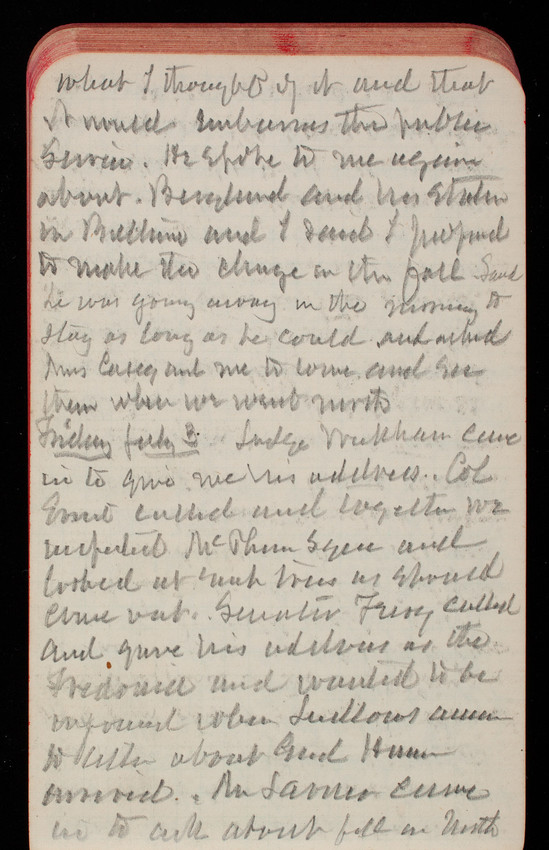 what I thought of it and that
it would embarrass the public
Service. He spoke to me again
about. Berglund and his status
in Baltimore and I said I proposed
to make the change in the fall Said
he was going away in the morning to
stay as long as he could and asked
Mrs Casey and me to come and see
them when we went north
Friday July 3. Judge Wickham came
in to give me his address. Col
Ernst called and together we
inspected McPherson Square and
looked at such trees as should
come out. Senator Frye called
and gave his address as the
and wanted to be
informed when Ludlows answer
to letter about Head
arrived. Mr came
in to ask about fill in North